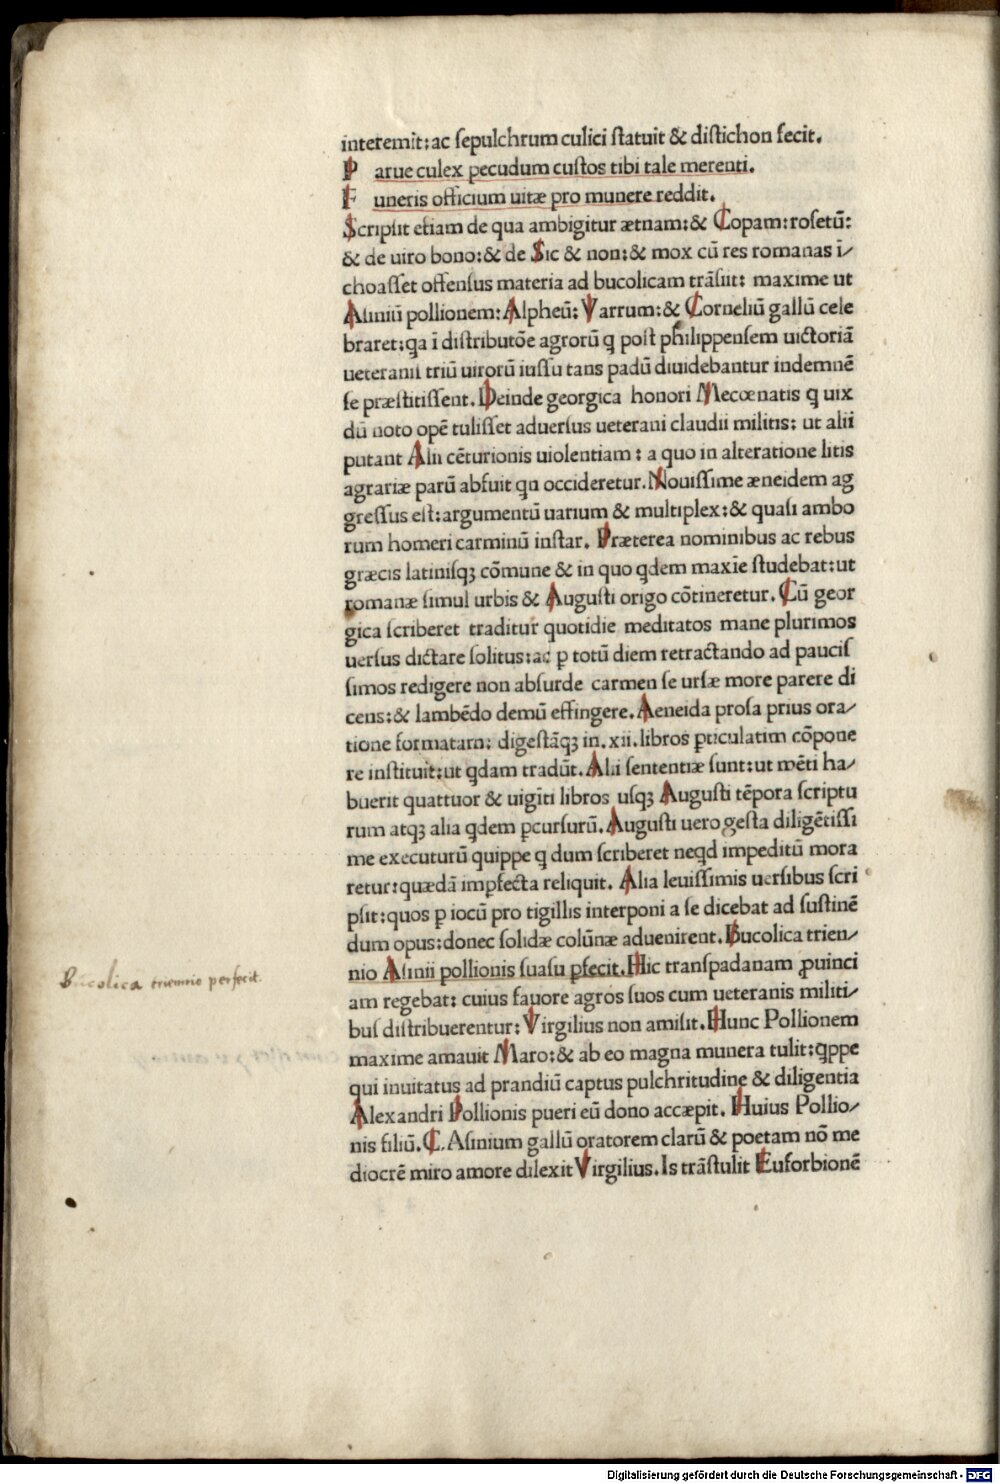 interemit: ac sepulchrum culici statuit & distichon fecit.
P arue culex pecudum custos tibi tale merenti.
F uneris officium uitæ pro munere reddit.
Scripsit etiam de qua ambigitur ætnam: & Copam: rosetū:
& de uiro bono: & de Sic & non: & mox cū res romanas ī/
choasset offensus materia ad bucolicam trāsiit: maxime ut
Asiniū pollionem: Alpheū: Varrum: & Corneliū gallū cele
braret: qa ī distributōe agrorū q post philippensem uictoriā
ueteranis triū uirorū iussu tans padū diuidebantur indemnē
se præstitissent. Deinde georgica honori Mecœnatis q uix
dū noto opē tulisset aduersus ueterani claudii militis: ut alii
putant Alii cēturionis uiolentiam: a quo in alteratione litis
agrariæ parū abfuit qn occideretur. Nouissime æneidem ag
gressus est: argumentū uarium & multiplex: & quasi ambo
rum homeri carminū instar. Præterea nominibus ac rebus
græcis latinisqꝫ cōmune & in quo qdem maxīe studebat: ut
romanæ simul urbis & Augusti origo cōtineretur. Cū geor
gica scriberet traditur quotidie meditatos mane plurimos
uersus dictare solitus: ac ꝑ totū diem retractando ad paucis
simos redigere non absurde carmen se ursæ more parere di
cens: & lambēdo demū effingere. Aeneida prosa prius ora/
tione formatam: digestāqꝫ in. xii. libros ꝑticulatim cōpone
re instituit: ut qdam tradūt. Alii sententiæ sunt: ut mēti ha/
buerit quattuor & uigīti libros usqꝫ Augusti tēpora scriptu
rum atqꝫ alia qdem ꝑcursurū. Augusti uero gesta diligētissi
me executurū quippe q dum scriberet neqd impeditū mora
retur: quædā imꝑfecta reliquit. Alia leuissimis uersibus scri
psit: quos ꝑ iocū pro tigillis interponi a se dicebat ad sustinē
dum opus: donec solidæ colūnæ aduenirent. Bucolica trien/
nio Asinii pollionis suasu ꝑfecit. Hic transpadanam ꝓuinci
am regebat: cuius fauore agros suos cum ueteranis militi/
bus distribuerentur: Virgilius non amisit. Hunc Pollionem
maxime amauit Maro: & ab eo magna munera tulit: qppe
qui inuitatus ad prandiū captus pulchritudine & diligentia
Alexandri Pollionis pueri eū dono accæpit. Huius Pollio/
nis filiū. C. Asinium gallū oratorem clarū & poetam nō me
diocrē miro amore dilexit Virgilius. Is trāstulit Euforbionē
Bucolica triennio perfecit.
Digitalisierung gefördert durch die Deutsche Forschungsgemeinschaft - DFG